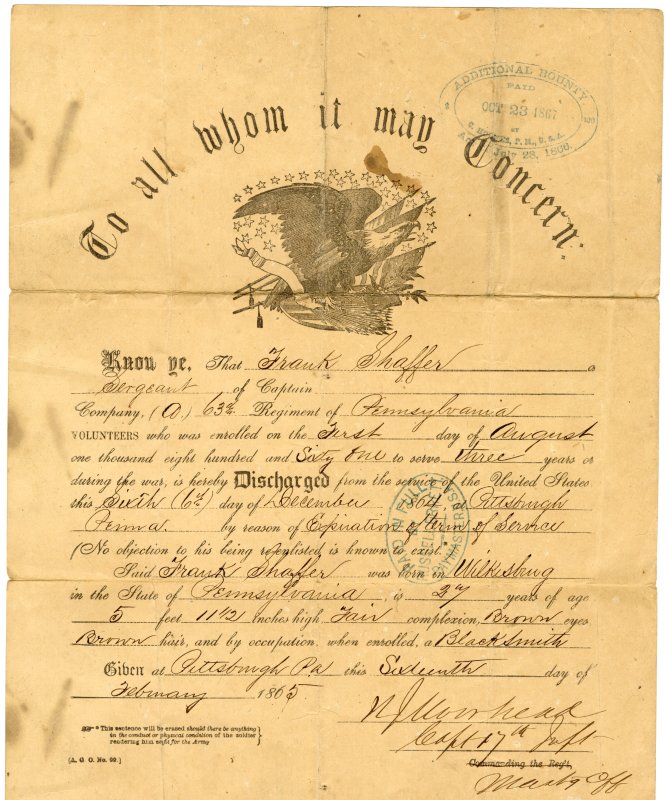 ADDITIONAL BOUNTY
PAID
OCT 23 1867
BY
P. M., U. S. A.
July 28, 1866.
To all whom it may Concern:
Know ye, That Frank Shaffer a
Sergeant of Captain
Company, (A.) 63rd Regiment of Pennsylvania
VOLUNTEERS who was enrolled on the First day of August
one thousand eight hundred and Sixty One to serve three years or
during the war, is hereby Discharged from the service of the United States
this Sixth (6th) day of December 1864, Pittsburgh
Penna. by reason of Expiration of term of Service
(No objection to his being reenlisted is known to exist.*)
Said Frank Shaffer was born in Wilkesburg
in the State of Pennsylvania, is 27 years of age
5 feet 11 1/2 inches high, Fair complexion, Brown eyes
Brown hair, and by occupation, when enrolled, a Blacksmith
Given at Pittsburgh Pa this Sixteenth day of
February 1865
Capt 17th Inft
Commanding the Reg't,
Must'g Off
* This sentence will be erased should there be anything
in the conduct or physical condition of the soldier
rendering him unfit for the Army
[A. G. O. No. 99.]
PAID IN FULL